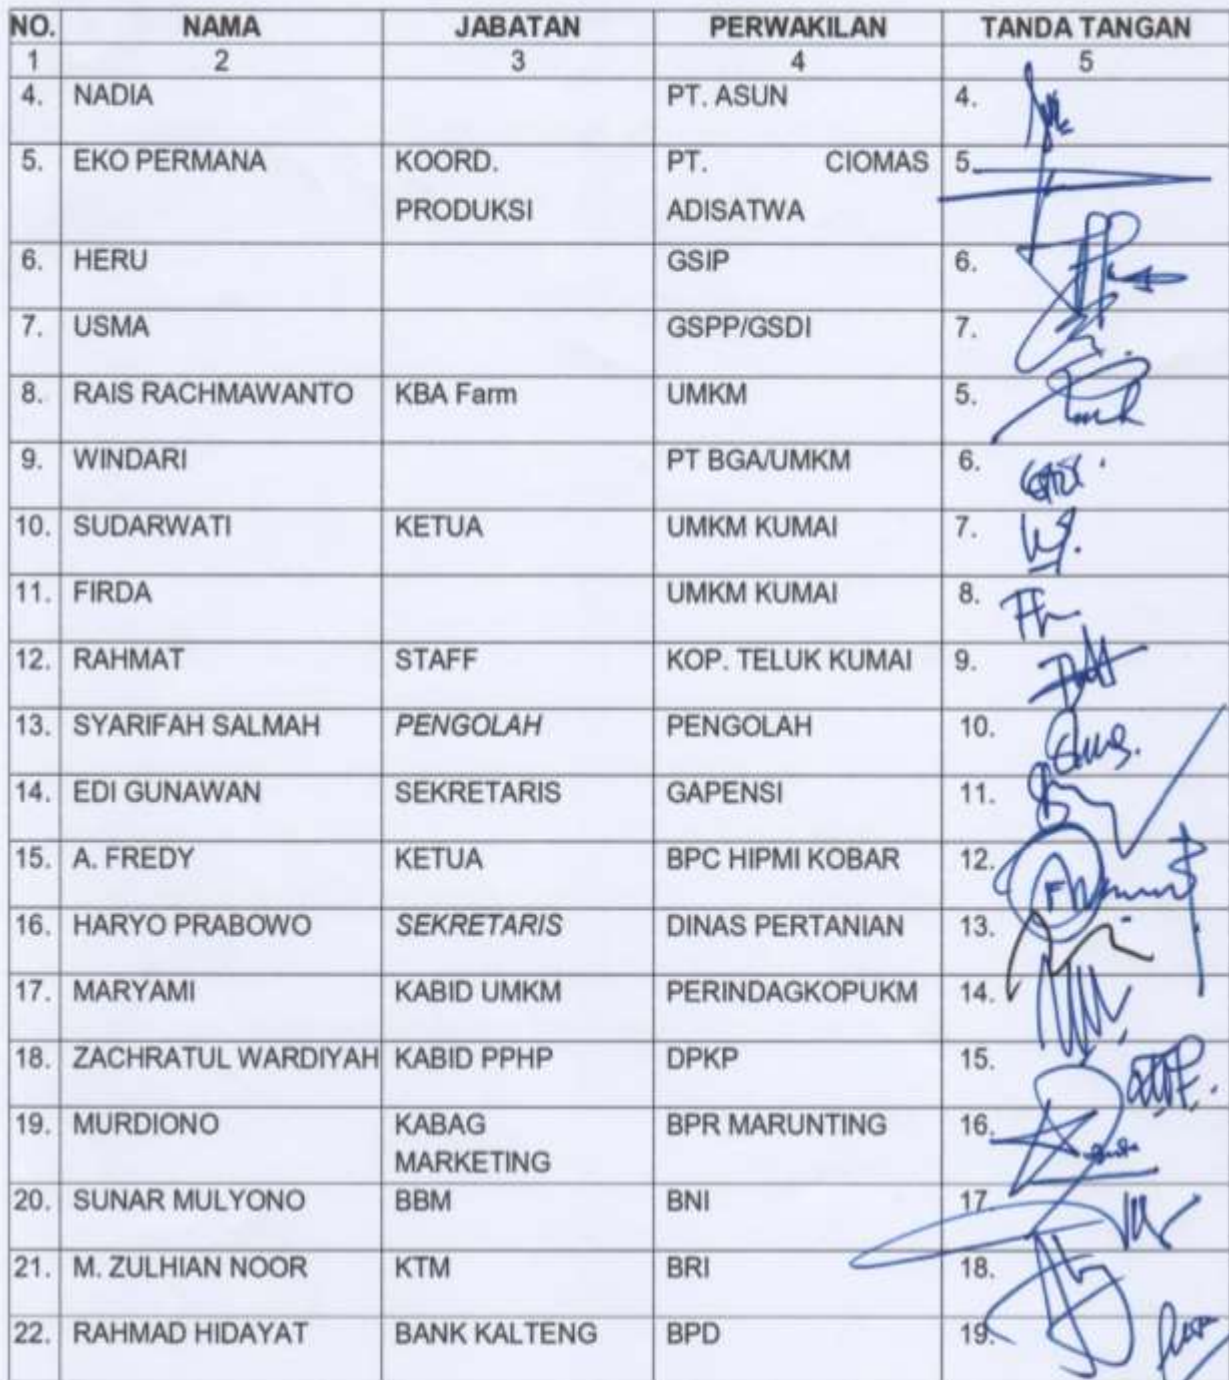 NO. NAMA JABATAN PERWAKILAN TANDA TANGAN
1 2 3 4 5
4. NADIA PT. ASUN 4.
5. EKO PERMANA KOORD. PT. CIOMAS 5.
PRODUKSI ADISATWA
6. HERU GSIP 6.
7. USMA GSPP/GSDI 7.
8. RAIS RACHMAWANTO KBA Farm UMKM 5.
9. WINDARI PT BGA/UMKM 6.
10. SUDARWATI KETUA UMKM KUMAI 7.
11. FIRDA UMKM KUMAI 8.
12. RAHMAT STAFF KOP. TELUK KUMAI 9.
13. SYARIFAH SALMAH PENGOLAH PENGOLAH 10.
14. EDI GUNAWAN SEKRETARIS GAPENSI 11.
15. A. FREDY KETUA BPC HIPMI KOBAR 12.
16. HARYO PRABOWO SEKRETARIS DINAS PERTANIAN 13.
17. MARYAMI KABID UMKM PERINDAGKOPUKM 14.
18. ZACHRATUL WARDIYAH KABID PPHP DPKP 15.
19. MURDIONO KABAG BPR MARUNTING 16.
MARKETING
20. SUNAR MULYONO BBM BNI 17.
21. M. ZULHIAN NOOR KTM BRI 18.
22. RAHMAD HIDAYAT BANK KALTENG BPD 19.